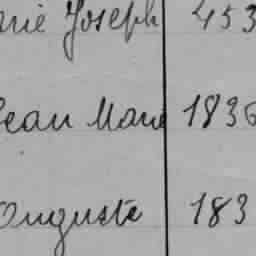 arie Joseph 453
Jean Marie 1836
Auguste 183